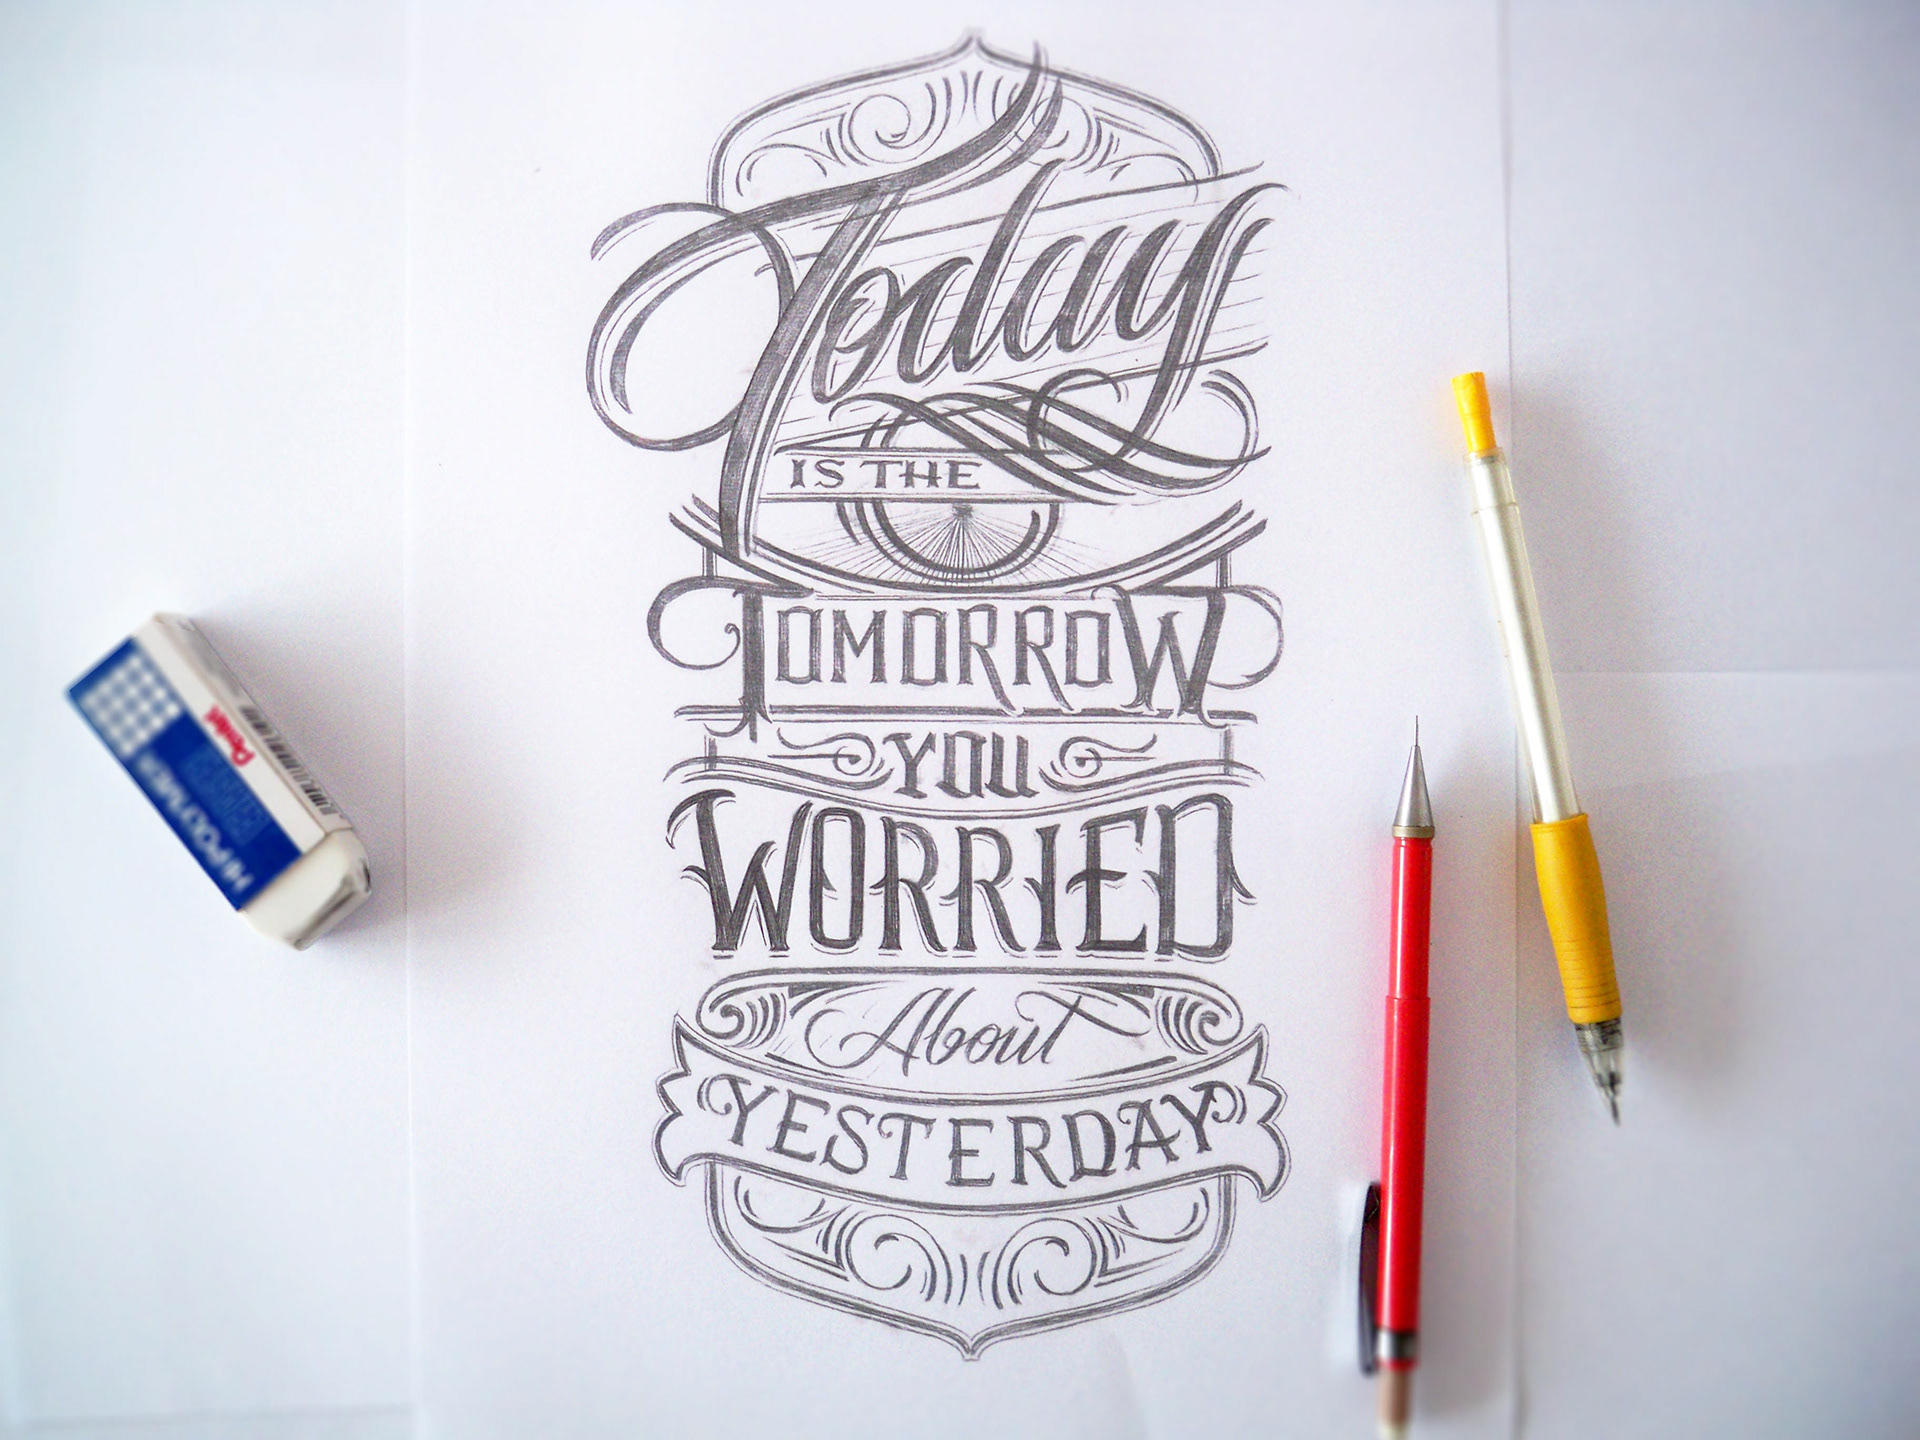 Today
IS THE
TOMORROW
YOU
WORRIED
About
YESTERDAY
Pentel
HI-POLYMER